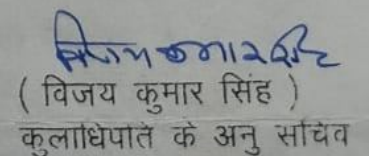 विजय कुमार सिंह
( विजय कुमार सिंह )
कुलाधिपति के अनु सचिव